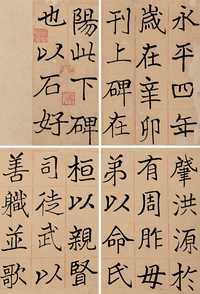 永平四年
歲在辛卯
刊上碑在
陽此下碑
也以石好
肇洪源於
有周胙母
弟以命氏
桓以親賢
司徒武以
善職並歌